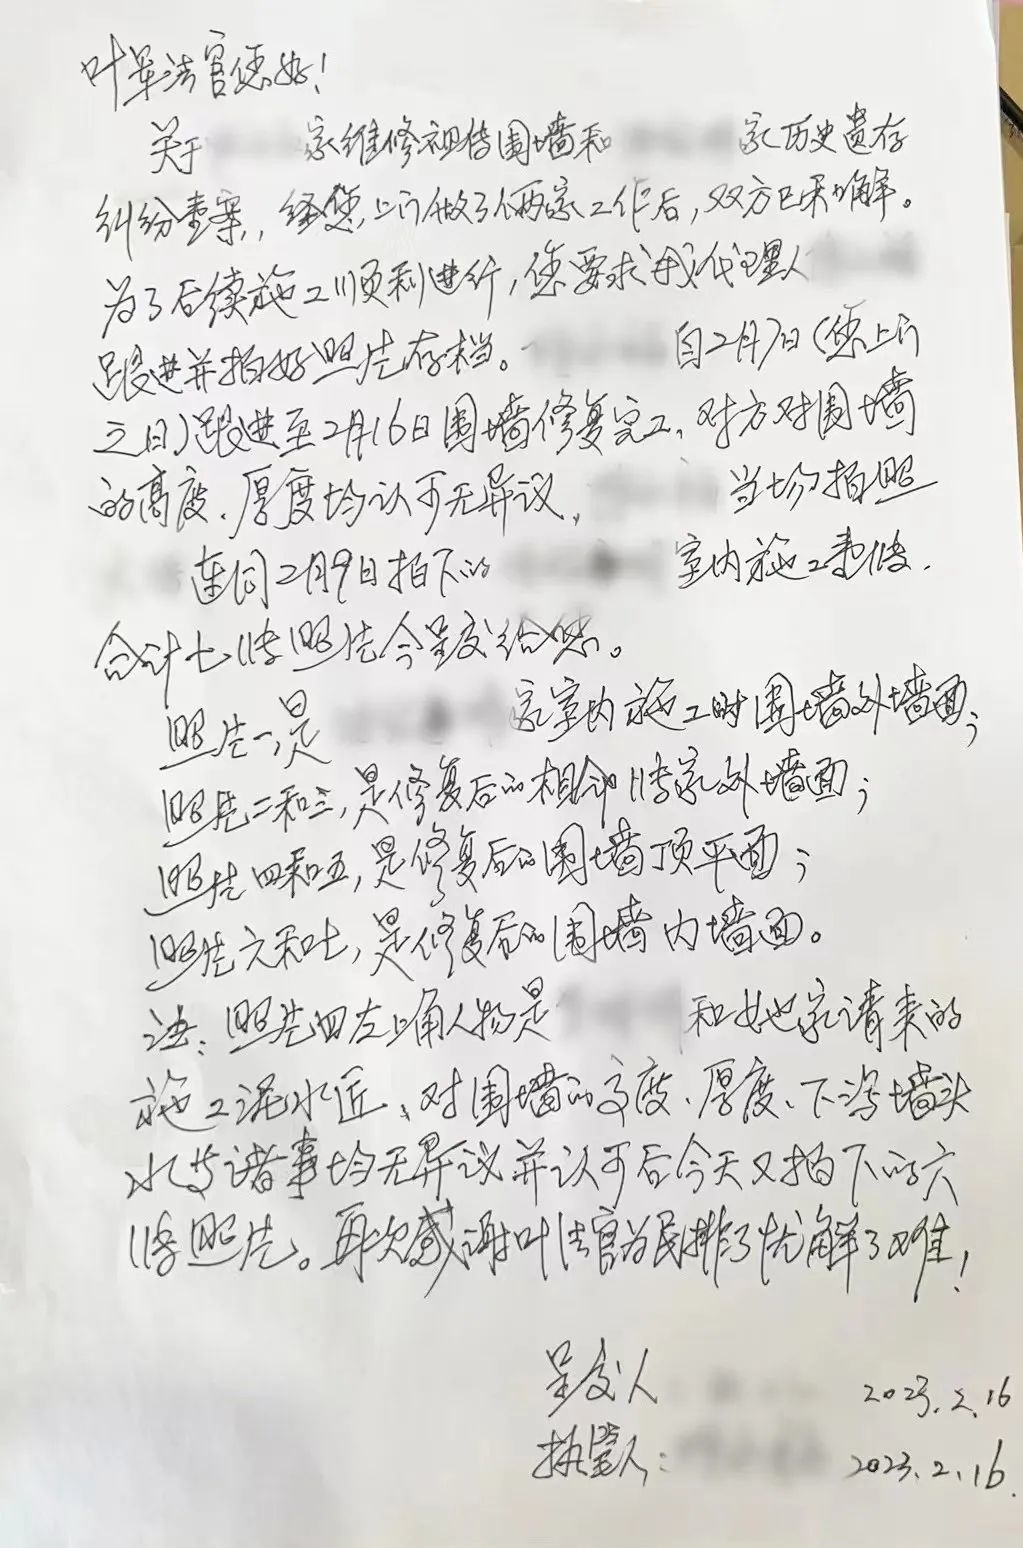 叶军法官您好!
关于 家维修祖传围墙和 家历史遗存
纠纷壹案,经您上门做了俩家工作后,双方已和解。
为了后续施工顺利进行,您要求我代理人
跟进并拍好照片存档。 自2月7日(您上门
之日)跟进至2月16日围墙修复完工,对方对围墙
的高度、厚度均认可无异议, 当场拍照
连同2月9日拍下的 室内施工
合计七张照片今呈交给您。
照片一,是 家室内施工时围墙外墙面;
照片二和三,是修复后的相邻 家外墙面;
照片四和五,是修复后的围墙顶平面;
照片六和七,是修复后的围墙内墙面。
注:照片四左上角人物是 和她家请来的
施工泥水匠、对围墙的高度、厚度、下泻墙头
水等诸事均无异议并认可后今天又拍下的六
张照片。再次感谢叶法官为民排了忧解了难!
呈交人 2023.2.16
执笔人: 2023.2.16.